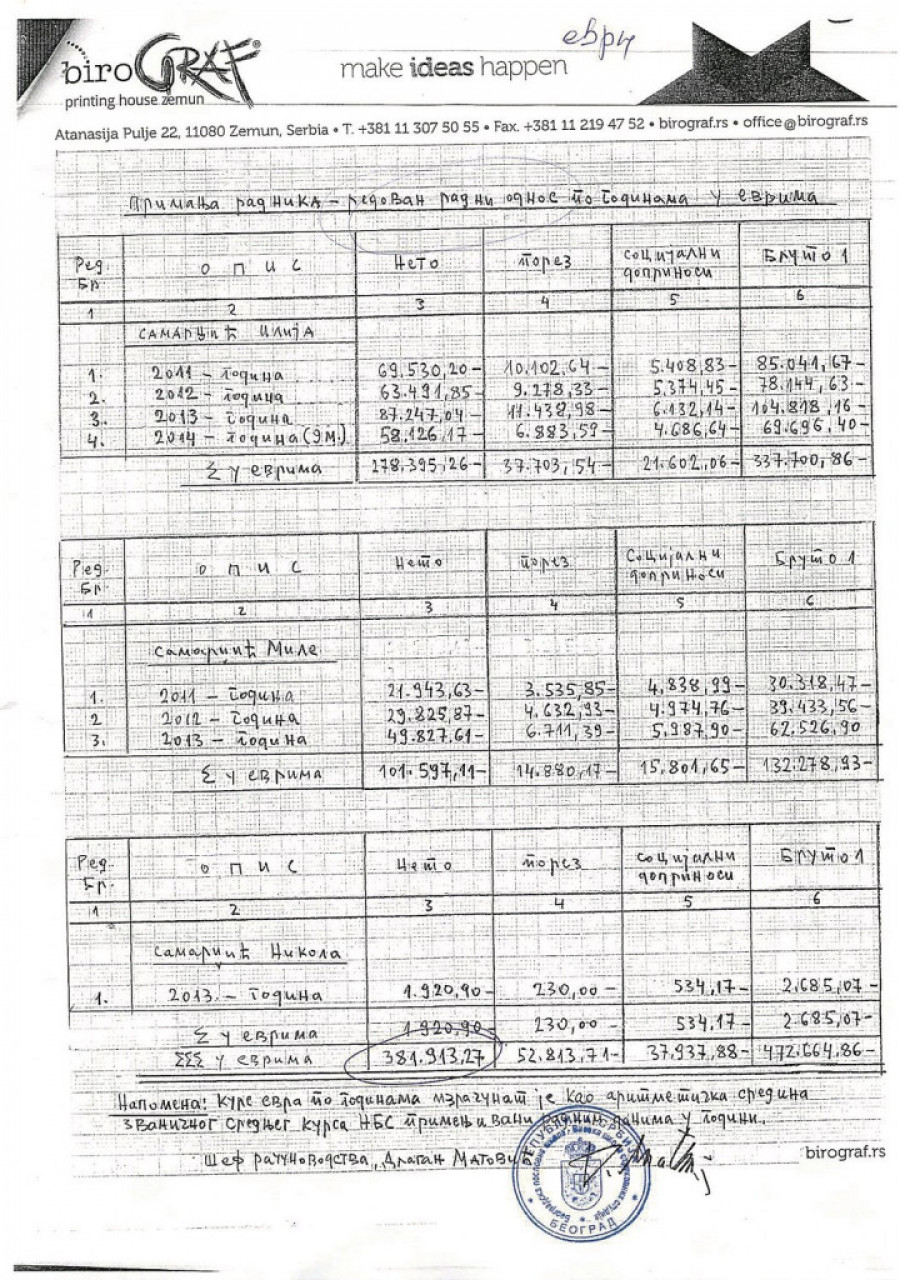 еври
biro GRAF®
printing house zemun
make ideas happen
Atanasija Pulje 22, 11080 Zemun, Serbia • T. +381 11 307 50 55 • Fax. +381 11 219 47 52 • birograf.rs • office@birograf.rs
Примања радника – редован радни однос по годинама у еврима
Ред. Бр. | О П И С | Нето | порез | социјални доприноси | Бруто 1
1 | 2 | 3 | 4 | 5 | 6
Самарџић Илија
1. 2011 – година 69.530,20– 10.102,64– 5.408,83– 85.041,67–
2. 2012 – година 63.491,85– 9.278,33– 5.374,45– 78.144,63–
3. 2013 – година 87.247,04– 11.438,98– 6.132,14– 104.818,16–
4. 2014 – година (9м.) 58.126,17– 6.883,59– 4.686,64– 69.696,40–
Σ у еврима 278.395,26– 37.703,54– 21.602,06– 337.700,86–
Ред. Бр. | О П И С | Нето | порез | Социјални доприноси | Бруто 1
1 | 2 | 3 | 4 | 5 | 6
Самарџић Миле
1. 2011 – година 21.943,63– 3.535,85– 4.838,99– 30.318,47–
2 2012 – година 29.825,87– 4.632,93– 4.974,76– 39.433,56–
3. 2013 – година 49.827,61– 6.711,39– 5.987,90– 62.526,90
Σ у еврима 101.597,11– 14.880,17– 15.801,65– 132.278,93–
Ред. Бр. | О П И С | Нето | порез | социјални доприноси | Бруто 1
1 | 2 | 3 | 4 | 5 | 6
Самарџић Никола
1. 2013. – година 1.920,90– 230,00– 534,17– 2.685,07–
Σ у еврима 1.920,90– 230,00– 534,17– 2.685,07–
ΣΣΣ у еврима 381.913,27 52.813,71– 37.937,88– 472.664,86–
Напомена: Курс евра по годинама израчунат је као аритметичка средина
званичног средњег курса НБС примењивани радним данима у години.
Шеф рачуноводства, Драган Матовић
РЕПУБЛИКА СРБИЈА
БЕОГРАД
birograf.rs